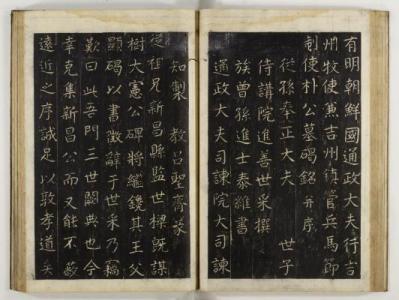 有明朝鮮國通政大夫行吉
州牧使兼吉州鎮管兵馬節
制使朴公墓碣銘并序
從孫奉正大夫 世子
侍講院進善世采撰
族曾孫進士泰維書
通政大夫司諫院大司諫
知製 教呂聖齊篆
從祖兄新昌縣監世樑旣謀
樹大憲公碑將繼鐫其王父
顯碣以書徵辭于世采乃竊
歎曰此吾門三世闕典也今
幸克集新昌公而又能不蔽
遠近之序誠足以敦孝道矣